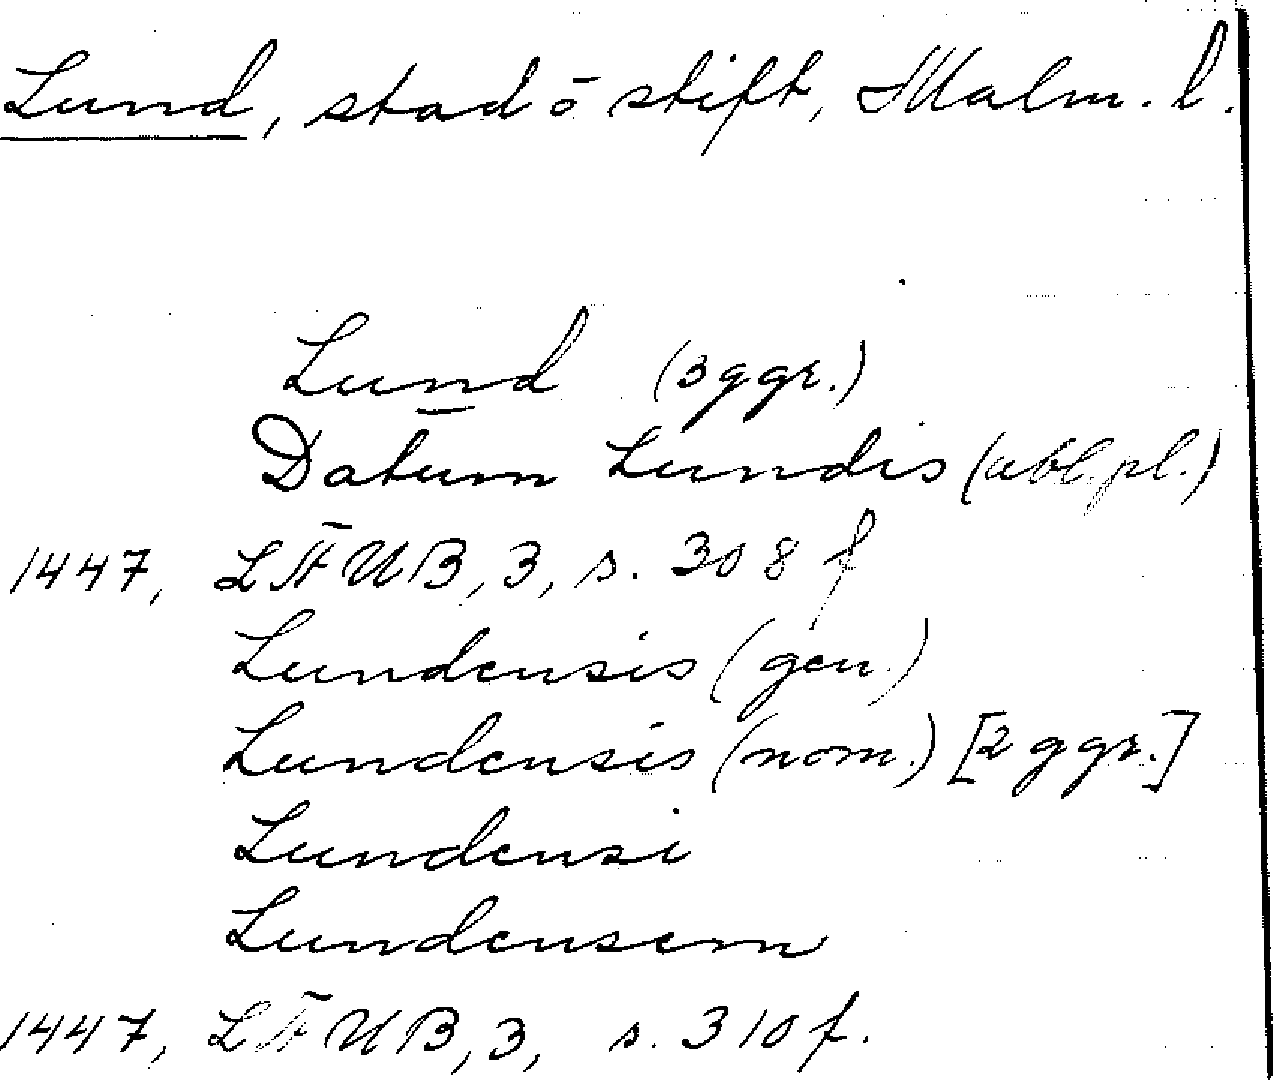 Lund, stad ō stift, Malm. l.
Lund (3 ggr.)
Datum Lundis (abl. pl.)
1447, LÄUB, 3, s. 308 f
Lundensis (gen.)
Lundensis (nom.) [2 ggr.]
Lundensi
Lundensem
1447, LÄUB, 3, s. 310 f.